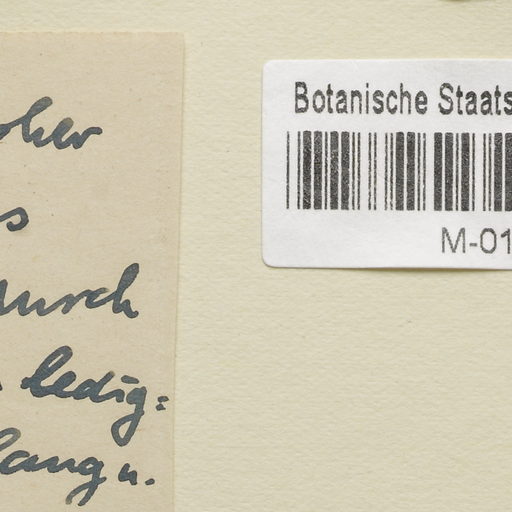 s
durch
ledig:
lang u.
Botanische Staats
M-01